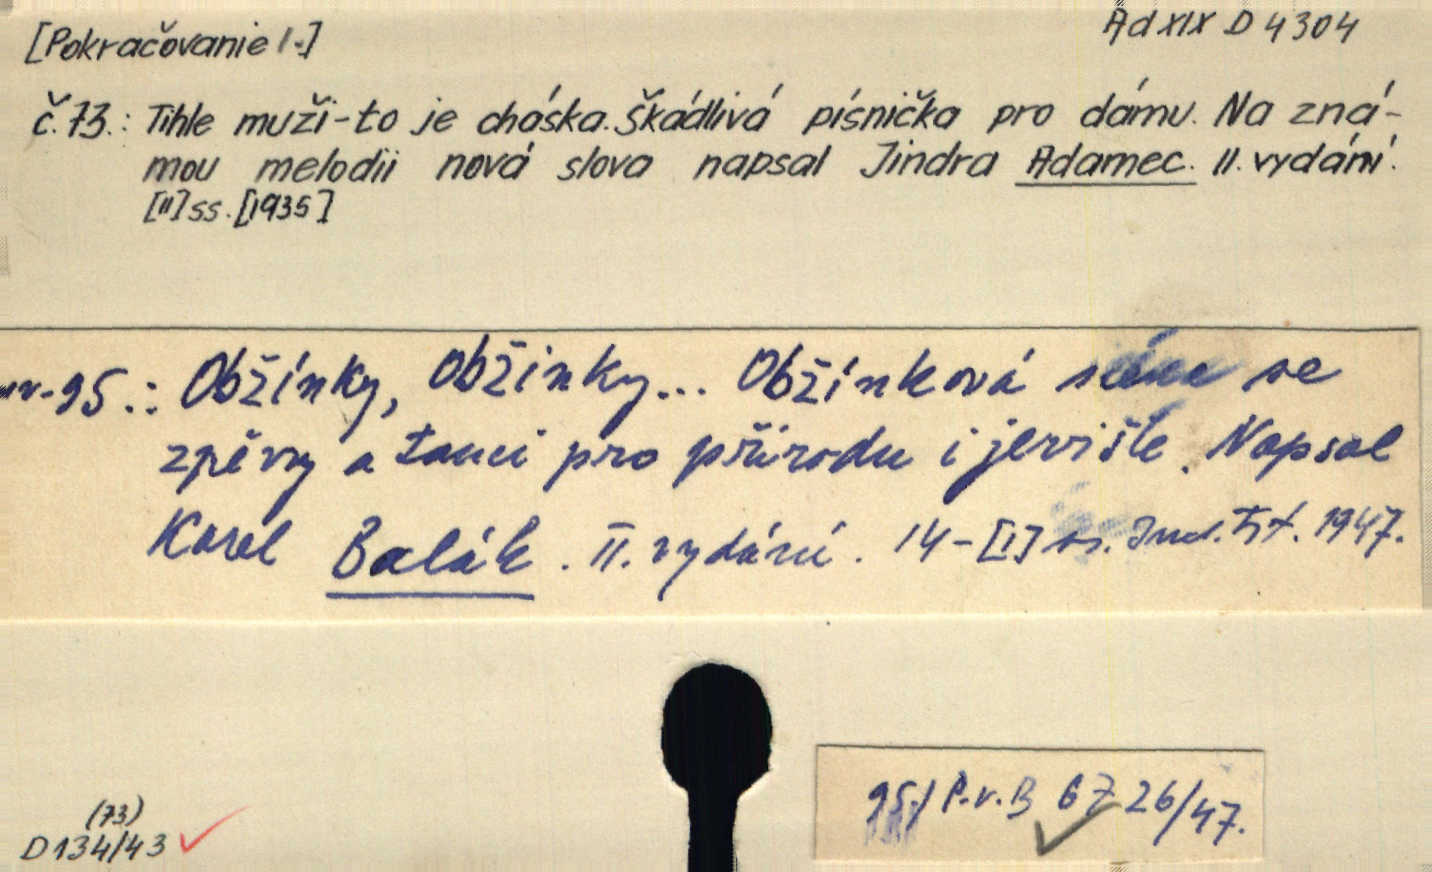 [Pokračovanie 1.]
Ad XIX D 4304
č. 73.: Tihle muži-to je cháska. Škádlivá písnička pro dámu. Na zná-
mou melodii nová slova napsal Jindra Adamec. II. vydání.
[II] ss. [1935]
95.: Obžínky, Obžínky... Obžínková scéna se
zpěvy a tanci pro přírodu i jeviště. Napsal
Karel Balák. II. vydání. 14-[I] ss. Ind. Tit. 1947.
95./ P.v.B 67 26/47.
(73)
D 134/43